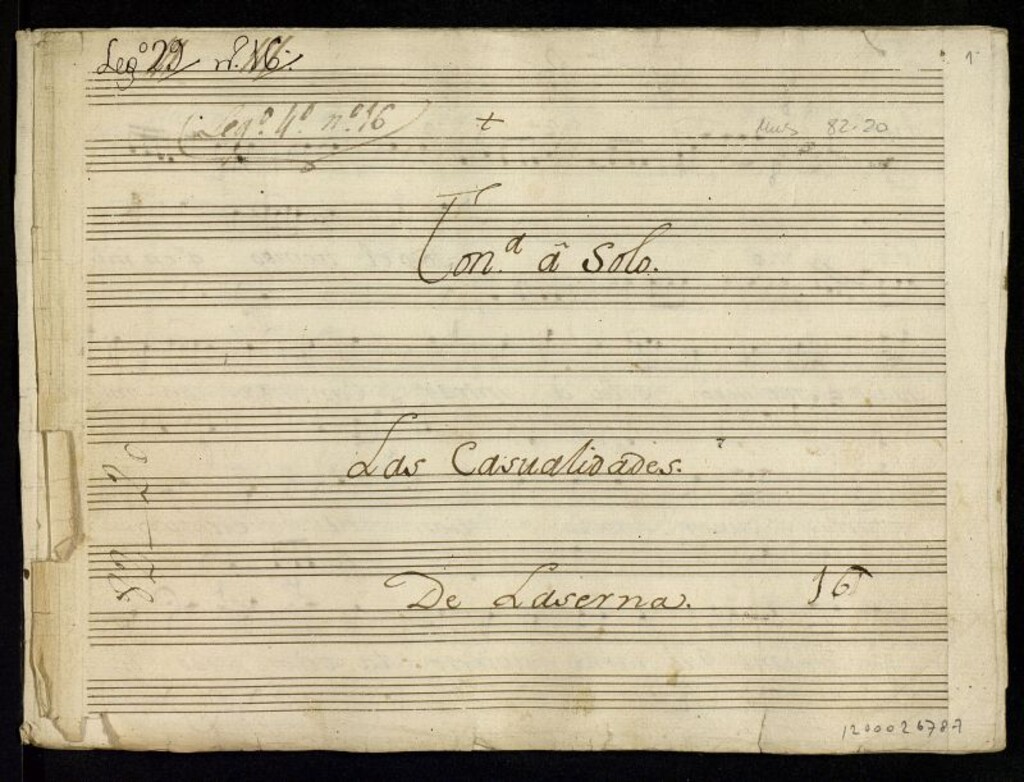 Leg.º 29 n.º 16.
1
(Leg.º 4.º n.º 16
+
Mus 82-20
Ton.ª â Solo.
Las Casualidades.
De Laserna.
16
1200026787